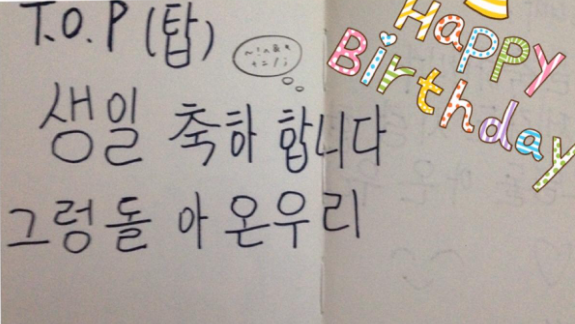 T.O.P (탑)
HAPPY
Birthday
생일 축하 합니다
그렁돌 아 온우리